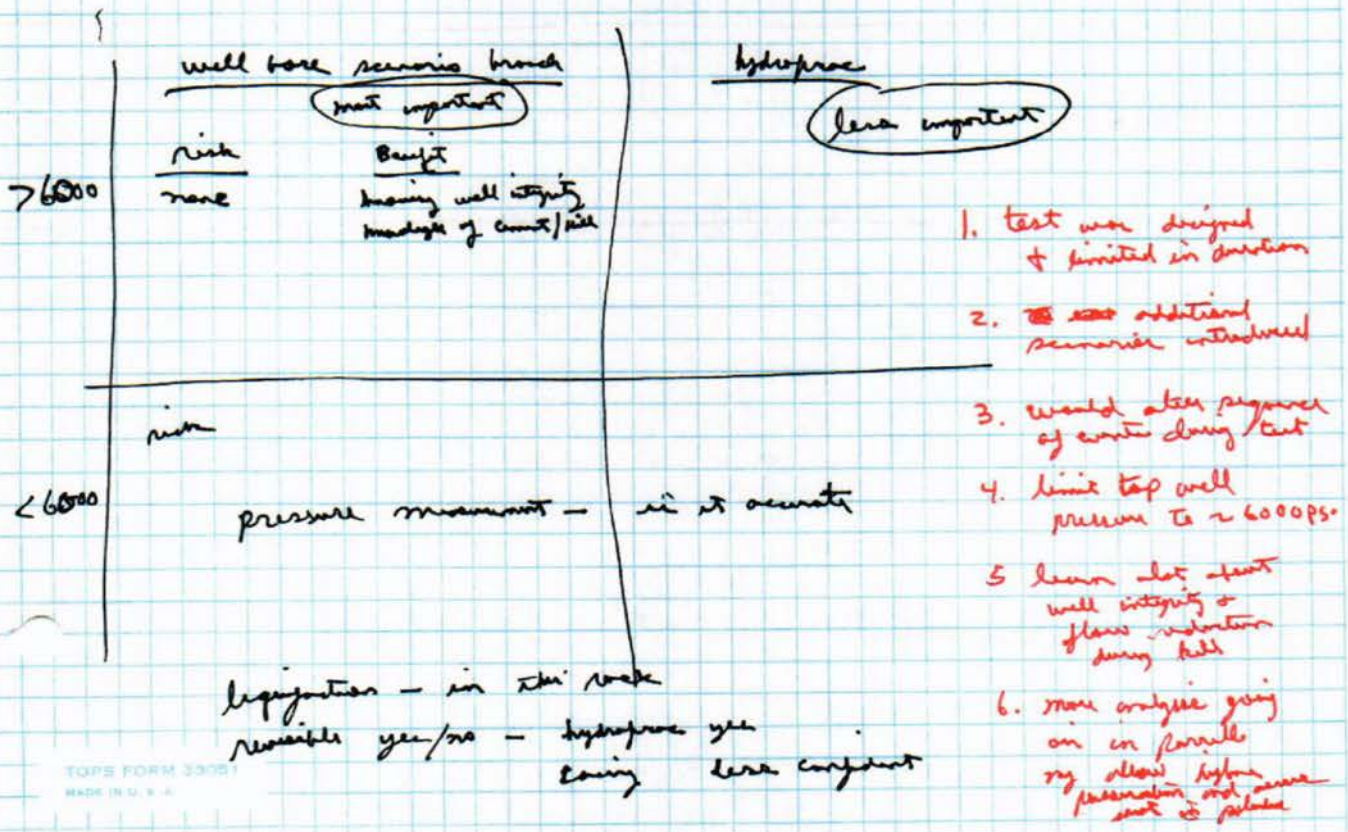 well bore scenario branch
most important
risk Benefit
>6000 none knowing well integrity
knowledge of cement/kill
hydrofrac
less important
risk
<6000 pressure measurement – is it accurate
liquifaction – in this rock
reversible yes/no – hydrofrac yes
casing less confident
1. test was designed
+ limited in duration
2. additional
scenarios introduced
3. would alter sequence
of events during test
4. limit top well
pressure to ~ 6000 ps.
5 learn alot about
well integrity +
flow reduction
during kill
6. more analysis going
on in
allow
and
TOPS FORM 33051
MADE IN U.S.A